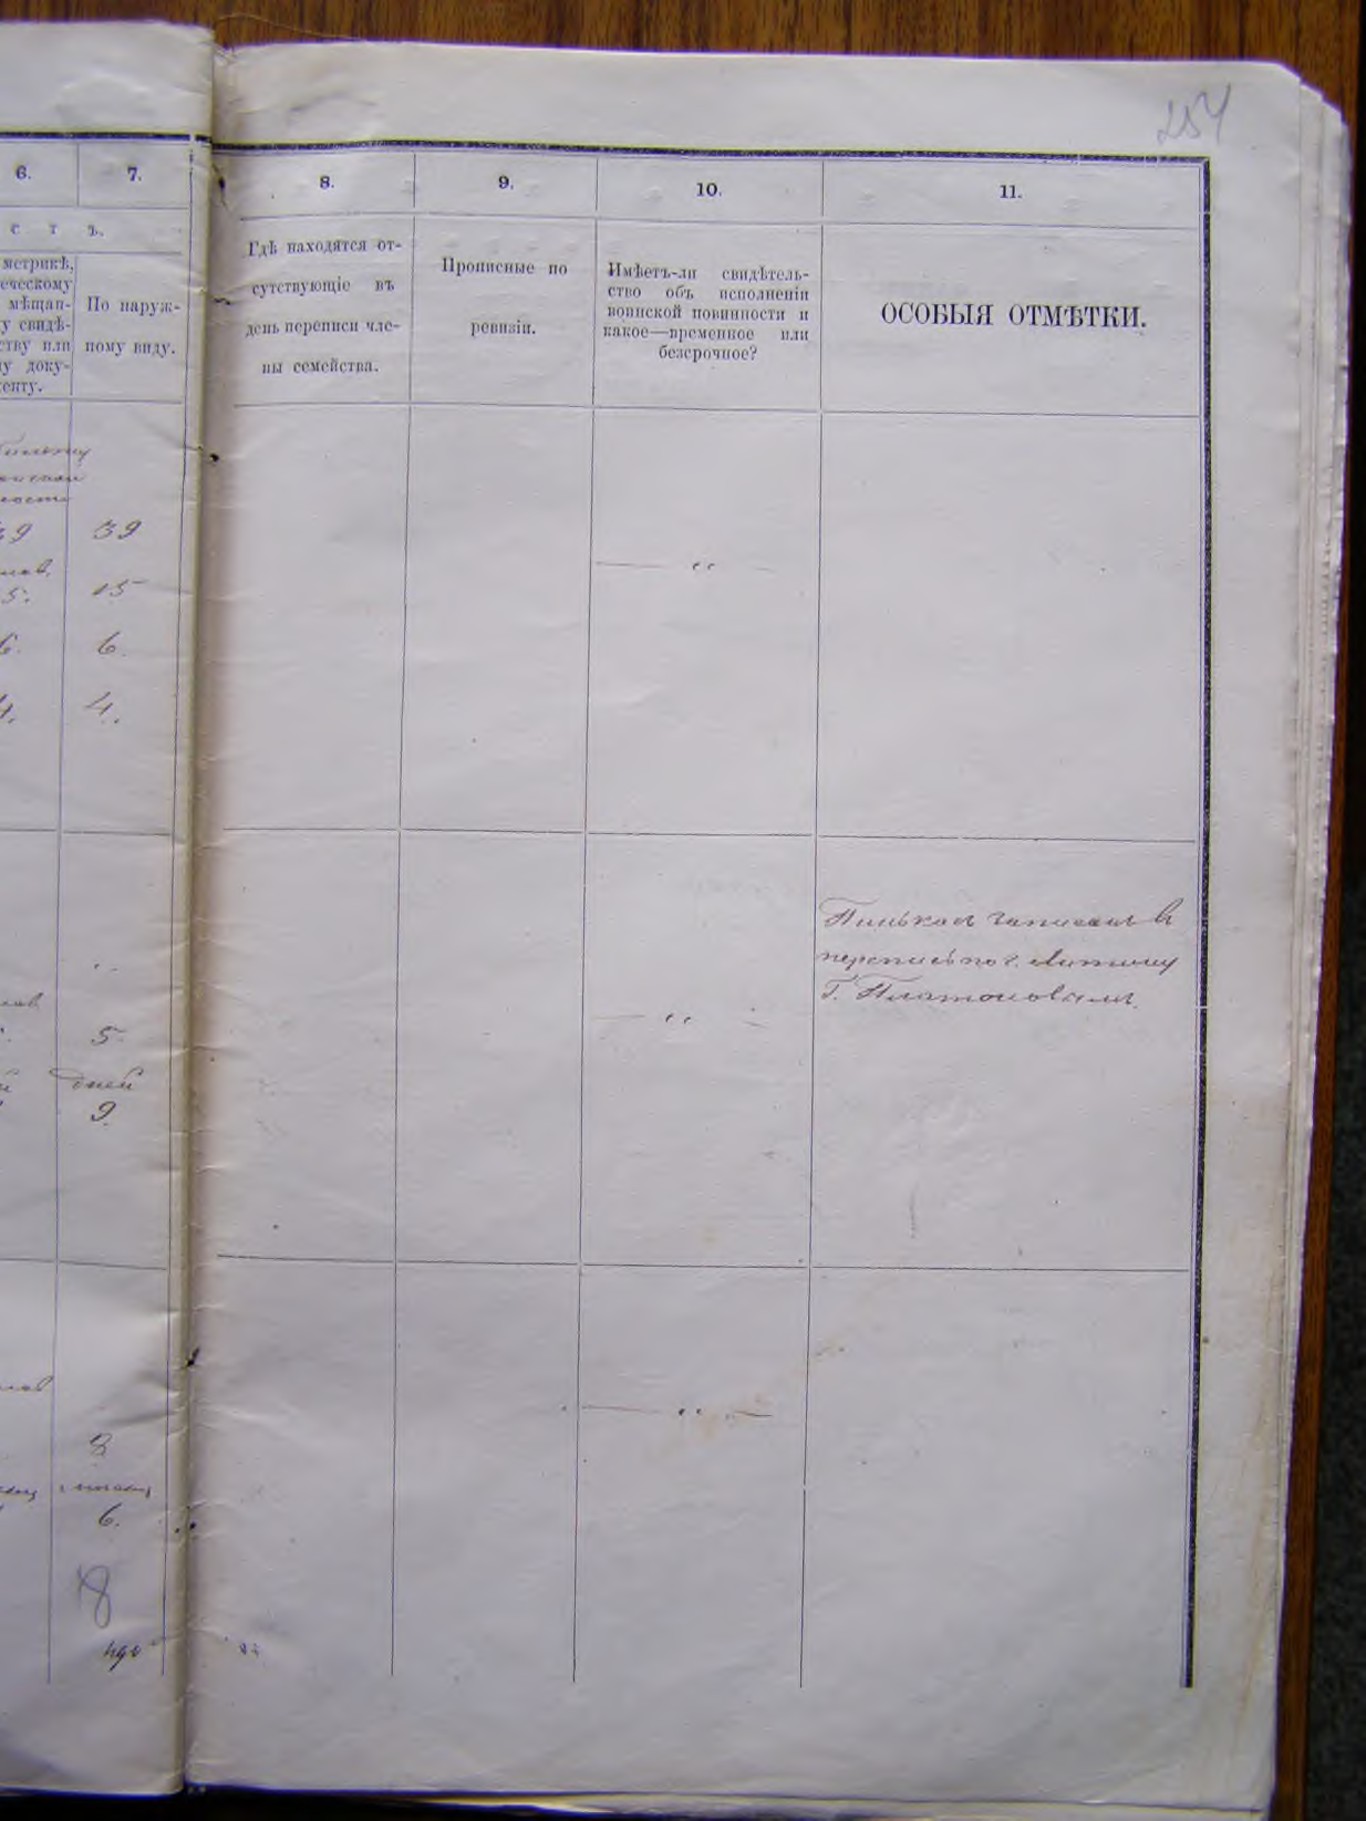 254
6.
7.
8.
9.
10.
11.
с т ъ.
метрикѣ,
ческому
мѣщан-
у свидѣ-
ству или
у доку-
енту.
По наруж-
ному виду.
Гдѣ находятся от-
сутствующіе въ
день переписи чле-
ны семейства.
Прописные по
ревизіи.
Имѣетъ-ли свидѣтель-
ство объ исполненіи
воинской повинности и
какое—временное или
безсрочное?
ОСОБЫЯ ОТМѢТКИ.
39 39
5. 15
6. 6.
4. 4.
Пинькась записанъ въ
перепись по г.
Г. Платоновымъ.
5
дней
9.
8
6.
8